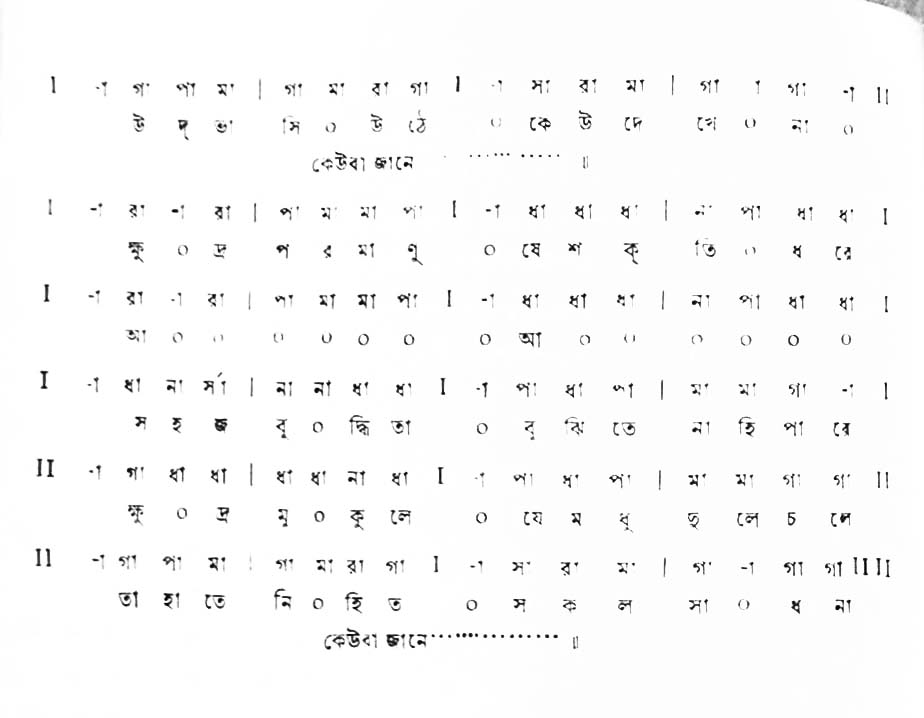 I -া গা পা মা | গা মা রা গা I -া সা রা মা | গা া গা -া II
উ দ্ ভা সি ০ উ ঠে ০ কে উ দে খে ০ না ০
কেউবা জানে ............ ॥
I -া রা -া রা | পা মা মা পা I -া ধা ধা ধা | না পা ধা ধা I
ক্ষু ০ দ্র প র মা ণু ০ যে শ ক্ তি ০ ধ রে
I -া রা -া রা | পা মা মা পা I -া ধা ধা ধা | না পা ধা ধা I
আ ০ ০ ০ ০ ০ ০ ০ আ ০ ০ ০ ০ ০ ০
I -া ধা না র্সা | না না ধা ধা I -া পা ধা পা | মা মা গা -া I
স হ জ বু ০ দ্ধি তা ০ বু ঝি তে না হি পা রে
II -া গা ধা ধা | ধা ধা না ধা I -া পা ধা পা | মা মা গা গা II
ক্ষু ০ দ্র মু ০ কু লে ০ যে ম ধু দু লে চ লে
II -া গা পা মা | গা মা রা গা I -া সা রা মা | গা -া গা গা II II
তা হা তে নি ০ হি ত ০ স ক ল সা ০ ধ না
কেউবা জানে.................. ॥